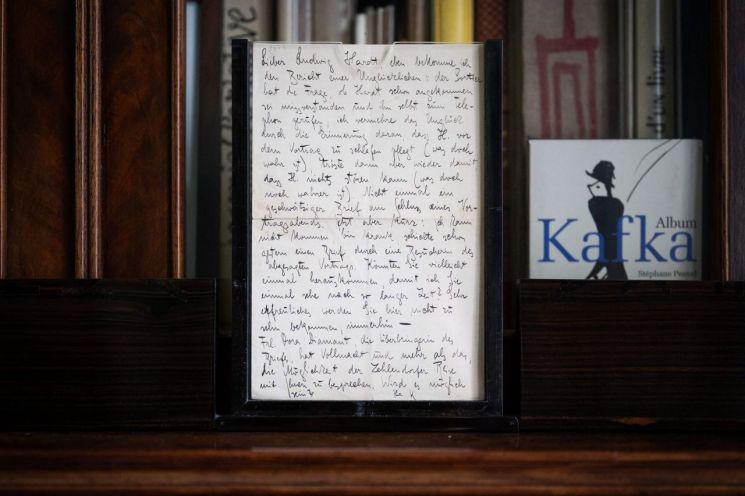 Lieber Ludwig Hardt, eben bekomme ich
den Bericht eines Unglücklichen: der Portier
hat die Frage, ob Hardt schon angekommen
sei missverstanden und ihn selbst zum Tele-
phon gerufen, ich vermehre das Unglück
durch die Erinnerung daran dass H. vor
dem Vortrag zu schlafen pflegt (was doch
wahr ist) tröste dann aber wieder damit
dass H. nichts stören kann (was doch
noch wahrer ist) Nicht einmal ein
geschwätziger Brief am Schluss eines Vor-
tragsabends. Jetzt aber kurz: ich kann
nicht kommen, bin krank, schickte schon
gestern einen Brief durch eine Besucherin des
abgesagten Vortrags. Könnten Sie vielleicht
einmal herauskommen, damit ich Sie
einmal sehe nach so langer Zeit? Sehr
erfreuliches werden Sie hier nicht zu
sehn bekommen, immerhin —
Frl. Dora Diamant, die Überbringerin des
Briefs, hat Vollmacht und mehr als das,
die Möglichkeit der Zehlendorfer Reise
mit Ihnen zu besprechen. Wird es möglich
sein? Ihr K
Album
Kafka
Stéphane
d'un livre